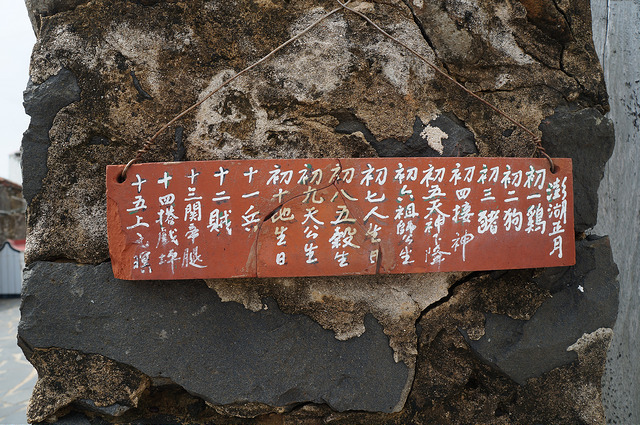 澎湖正月
初一鷄
初二狗
初三豬
初四接神
初五天神降
初六祖師生
初七人生日
初八五穀生
初九天公生
初十地生日
十一兵
十二賊
十三關帝腿
十四搭戲坪
十五上元暝